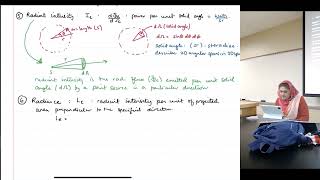 ⑤ Radiant intensity Ie = dΦe/dΩ = power per unit solid angle = watts/sr
arc-length (s)
dΩ (solid angle)
dΩ = sinθ dθ dφ
solid angle: (Ω): steradian
describes 3D angular span in 3D space
s dΩ
radiant intensity is the rad. flux (Φe) emitted per unit solid
angle (dΩ) by a point source in a particular direction
⑥ Radiance: Le - radiant intensity per unit of projected
area perpendicular to the specified direction
Le =